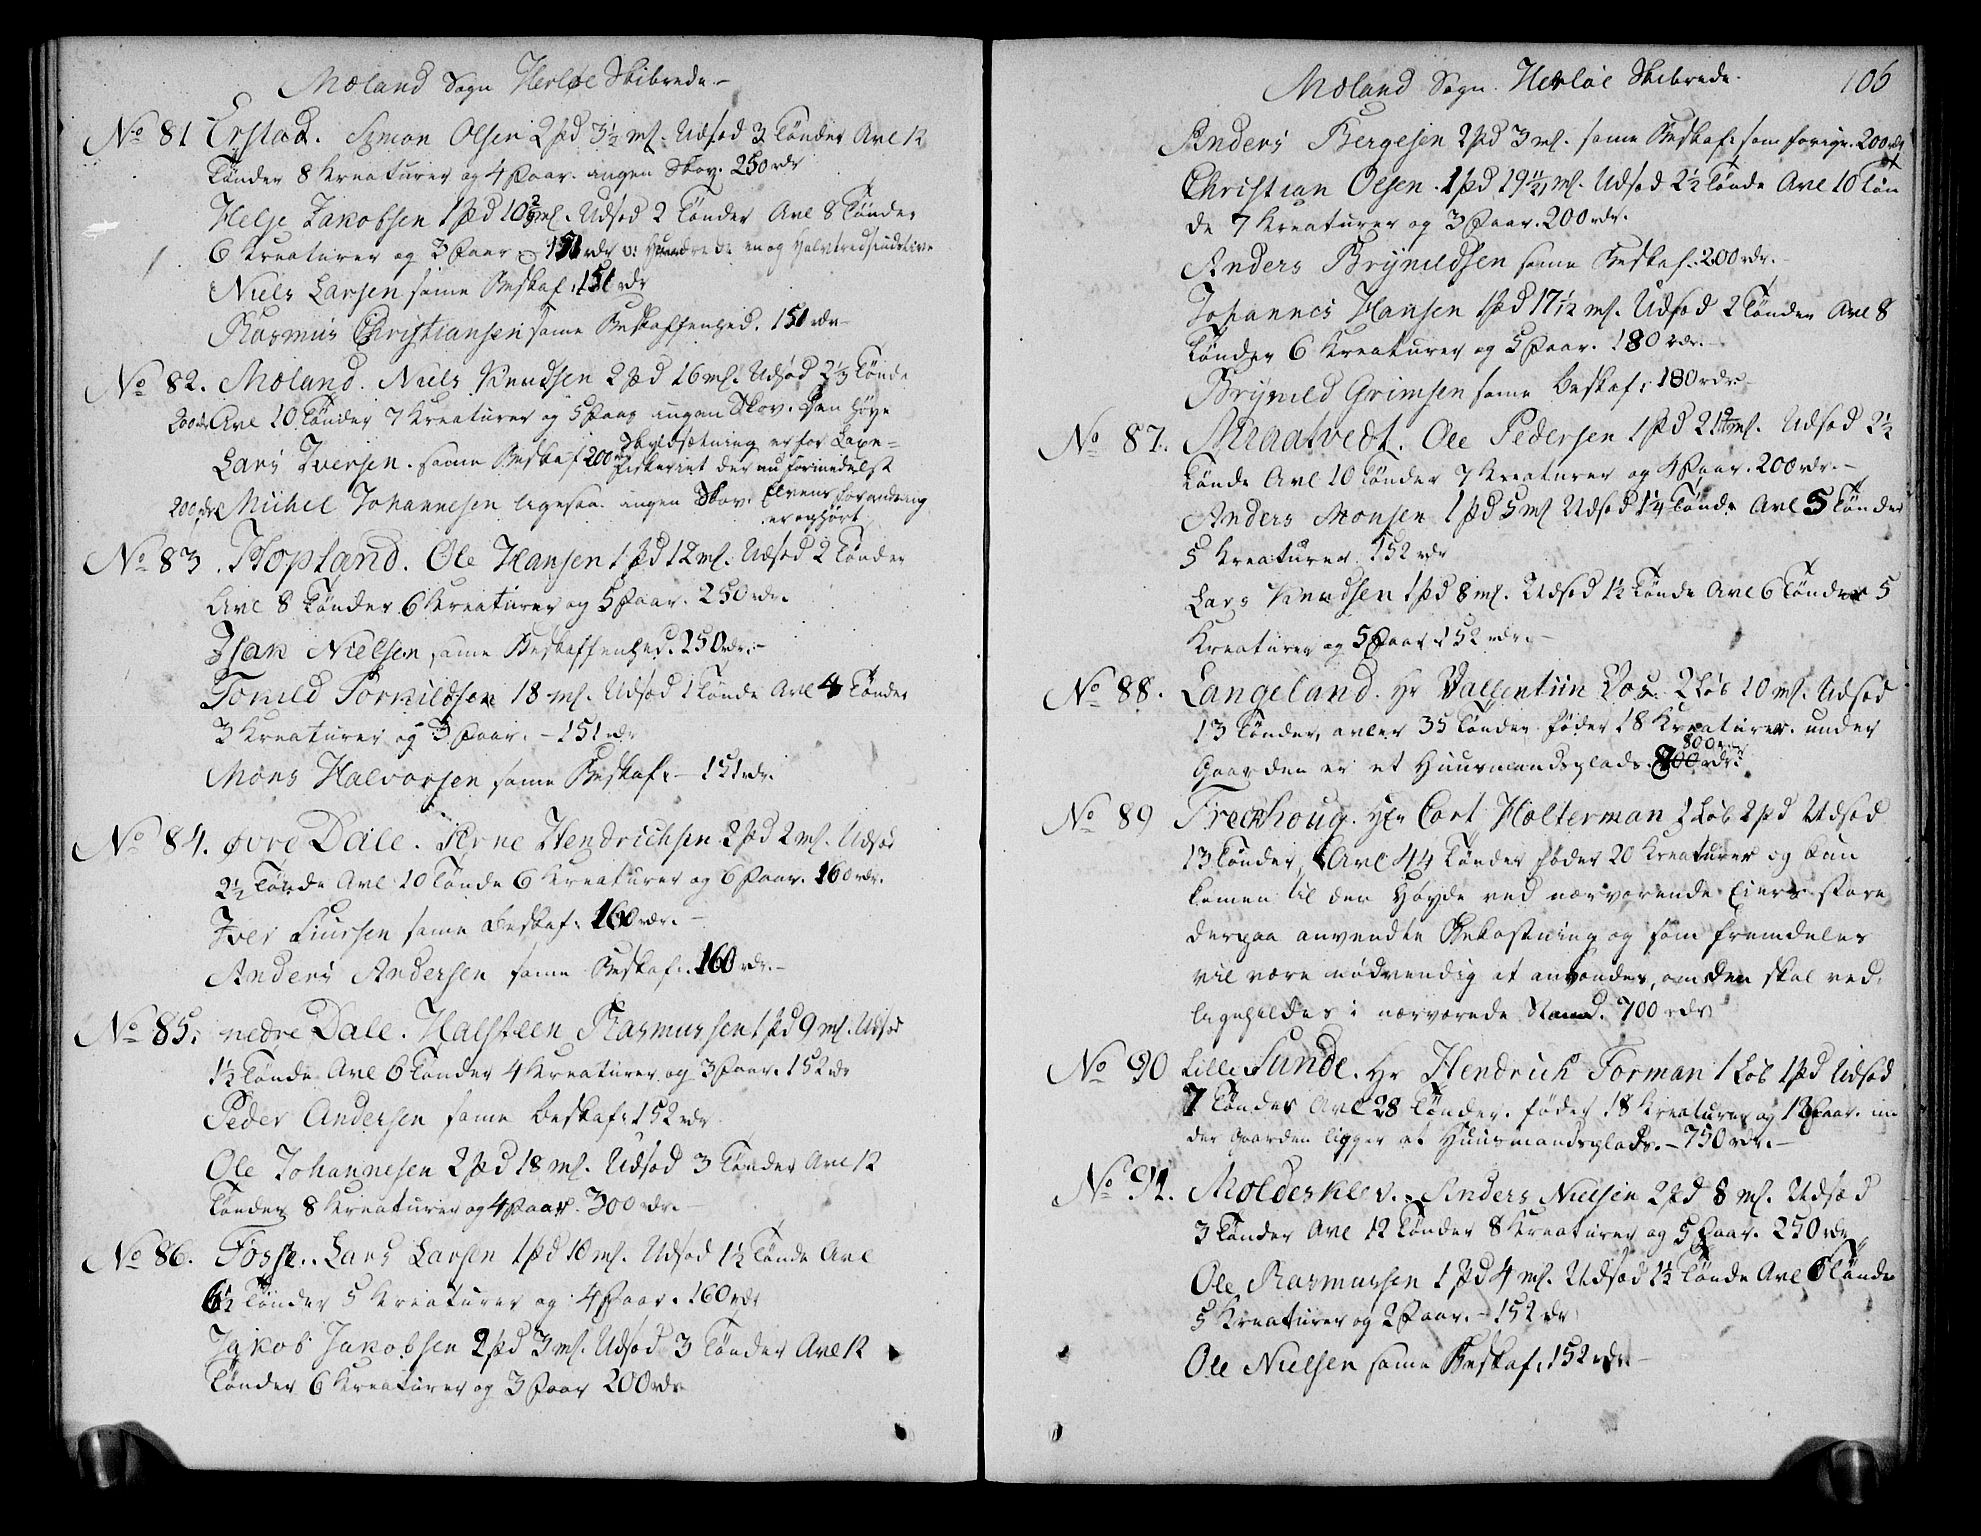 Moland Sogn Herløe Skibrede.
No 81 Erstad. Simon Olsen 2 pd 3½ ml. Udsæd 3 Tønder Avl 12
Tønder 8 Kreaturer og 4 Faar. ingen Skov. 250 rdr
Helje Jakobsen 1 pd 10⅔ ml. Udsæd 2 Tønder Avl 8 Tønder
6 Kreaturer og 3 Faar 151 rdr o: Hundre og en og Halvtredsindstive
Niels Larsen same Beskaf: 151 rdr
Rasmus Christiansen same Beskaffenhed. 151 rdr
No 82. Moland. Niels Knudsen 2 pd 16 ml. Udsæd 2⅓ Tønde
200 rdr Avl 10 Tønder 7 Kreaturer og 5 Faar ingen Skov. Den høye
Skyldsætning er for Laxe-
Lars Iversen. same Beskaf 200 rdr fiskeriet der nu formedelst
200 rdr Michel Johannesen ligesaa ingen Skov. Elvens forandring
er ophørt
No 83. Hopland. Ole Hansen 1 pd 12 ml. Udsæd 2 Tønder
Avl 8 Tønder 6 Kreaturer og 5 Faar. 250 rdr.
Isak Nielsen same Beskaffenhed. 250 rdr.
Tomild Torkildsen 18 ml. Udsæd 1 Tønde Avl 4 Tønder
3 Kreaturer og 3 Faar. - 151 rdr
Mons Halvorsen same Beskaf: - 151 rdr.
No 84. øvre Dale. Arne Hendrichsen 2 pd 2 ml. Udsæd
2½ Tønde Avl 10 Tønde 6 Kreaturer og 6 Faar. 160 rdr.
Iver Siursen same Beskaf: 160 rdr.
Anders Andersen same Beskaf: 160 rdr.
No 85. nedre Dale. Halsteen Rasmussen 1 pd 9 ml. Udsæd
1½ Tønde Avl 6 Tønder 4 Kreaturer og 3 Faar. 152 rdr
Peder Andersen same Beskaf: 152 rdr
Ole Johannesen 2 pd 18 ml. Udsæd 3 Tønder Avl 12
Tønder 8 Kreaturer og 4 Faar. 300 rdr.
No 86. Fosse. Lars Larsen 1 pd 10 ml. Udsæd 1½ Tønde Avl
6½ Tønder 5 Kreaturer og 4 Faar. 160 rdr
Jakob Jakobsen 2 pd 3 ml. Udsæd 3 Tønder Avl 12
Tønder 6 Kreaturer og 3 Faar 200 rdr
Moland Sogn. Herløe Skibrede. 106
Anders Bergesen 2 pd 3 ml. same Beskaf: som forige. 200 rdr
Christian Olsen. 1 pd 19½ ml. Udsæd 2½ Tønde Avl 10 Tøn
de 7 Kreaturer og 3 Faar. 200 rdr.
Anders Brynildsen same Beskaf. 200 rdr.
Johannes Hansen 1 pd 17½ ml. Udsæd 2 Tønder Avl 8
Tønder 6 Kreaturer og 5 Faar. 180 rdr.
Brynild Grimsen same Beskaf: 180 rdr
No 87. Ole Pedersen 1 pd 21 ml. Udsæd 2½
Tønde Avl 10 Tønder 7 Kreaturer og 4 Faar. 200 rdr.
Anders Monsen 1 pd 5 ml Udsæd 1¼ Tønde Avl 5 Tønder
5 Kreaturer. 152 rdr
Lars Knudsen 1 pd 8 ml. Udsæd 1½ Tønde Avl 6 Tønder 5
Kreaturer og 5 Faar. 152 rdr.
No 88. Langeland. Hr Vallentin 2 Løb 10 ml. Udsæd
13 Tønder, avler 35 Tønder føder 18 Kreaturer. under
800 rdr
Gaarden er et Huusmandsplads. 700 rdr.
No 89 Freckhoug. Hr Cort Holterman 1 Løb 2 pd Udsæd
13 Tønder, Avl 44 Tønder føder 20 Kreaturer og kan
komen til den Høyde ved nærværende Eiers store
derpaa anvendte Bekostning og som fremdeles
vil være nødvendig at anvendes, om den skal ved,
ligeholdes i nærværende Stand. 700 rdr
No 90 Lille Sunde. Hr Hendrich Forman 1 Løb 1 pd Udsæd
7 Tønder Avl 28 Tønder. føder 18 Kreaturer og 12 Faar. un
der Gaarden ligger et Huusmandsplads. - 750 rdr. -
No 91. Moldesklev. Anders Nielsen 2 pd 8 ml. Udsæd
3 Tønder Avl 12 Tønder 8 Kreaturer og 5 Faar. 250 rdr
Ole Rasmussen 1 pd 4 ml. Udsæd 1½ Tønde Avl 6 Tønder
5 Kreaturer og 2 Faar. - 152 rdr
Ole Nielsen same Beskaf: 152 rdr.